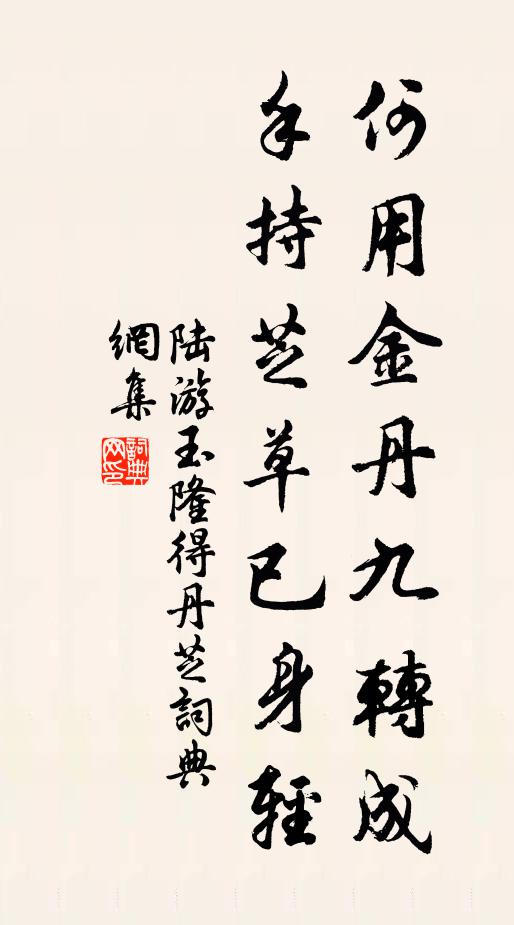 何用金丹九轉成
手持芝草已身輕
陆游玉隆得丹芝詞典
網集
詞典网印